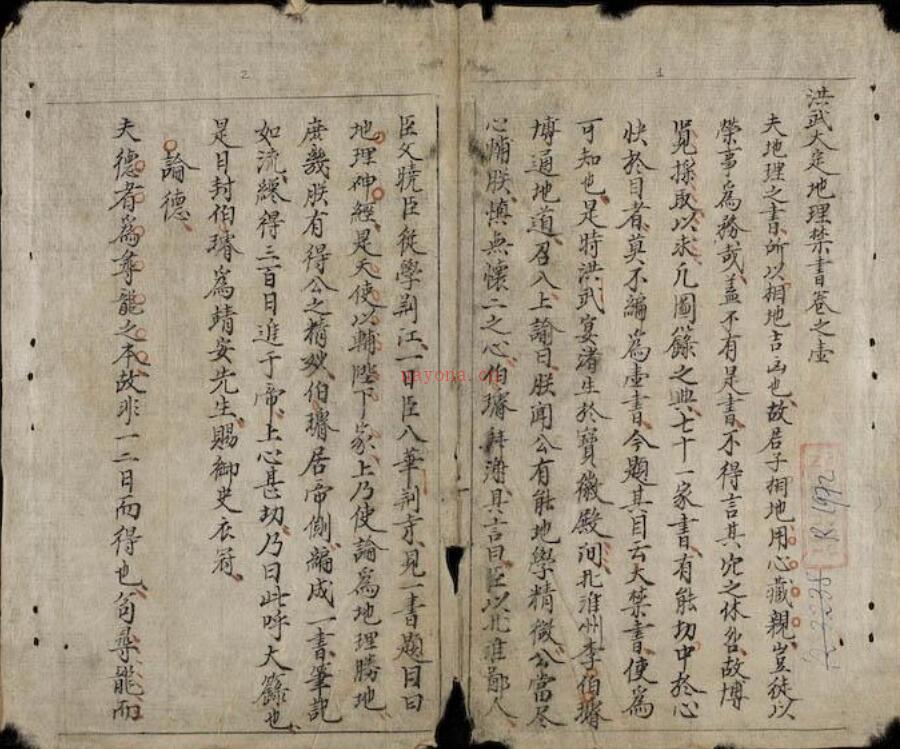 洪武大定地理禁書卷之壹
夫地理之書所以相地吉凶也故君子相地用心藏親豈徒以
榮事為務哉蓋不有是書不得言其穴之休咎故博
覽採取以未凢圖籙之典七十一家書有能切中於心
快於目者莫不編為壹書今題其目云大禁書使為
可知也是時洪武宴渚生於寶徽殿问北淮州李伯璿
博通地道召入上諭曰朕聞公有能地學精微公當尽
心悄朕慎無懷二之心伯璿拜謝具言曰臣以北淮鄙人
臣父曉臣従學荆江一日臣入華荆京見一書題目曰
地理神經是天使以輔陛下家上乃使論為地理勝地
庶幾朕有得公之精妙伯璿居帝側編成一書筆記
如流纔得三百日進于帝上心甚切乃曰此呼大籙也
是日封伯璿為靖安先生賜御史衣冠
論德
夫德者為尋龍之本故非一二日而得也苟尋龍而
1
2
R.1992
yayona.com